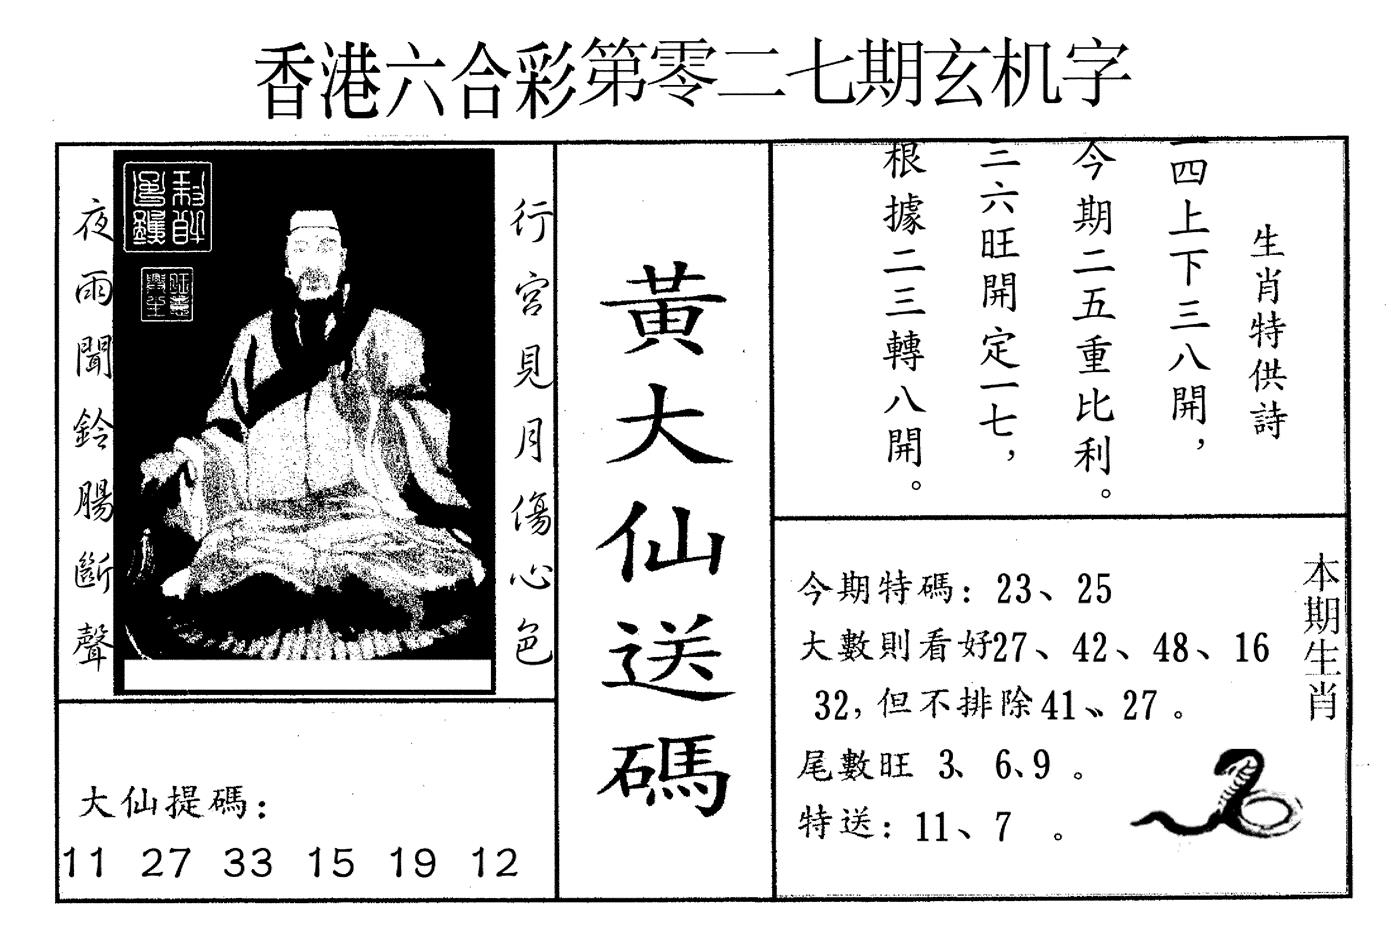 香港六合彩第零二七期玄机字
行宮見月傷心色
夜雨聞鈴腸斷聲
大仙提碼：
11 27 33 15 19 12
黃大仙送碼
生肖特供詩
四上下三八開，
今期二五重比利。
三六旺開定一七，
根據二三轉八開。
本期生肖
今期特碼：23、25
大數則看好27、42、48、16
32，但不排除41、27。
尾數旺 3、6、9。
特送：11、7 。